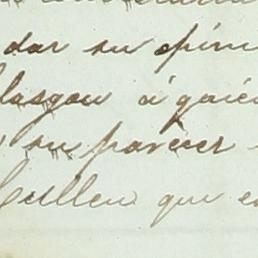 dar su opini
Glasgow á quién
su parecer
Cullen que e